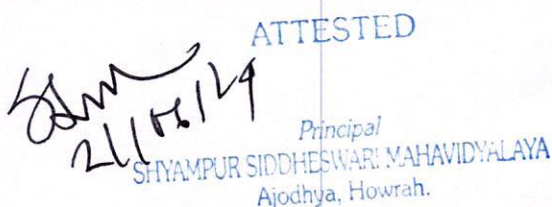 ATTESTED
21/06/24
Principal
SHYAMPUR SIDDHESWARI MAHAVIDYALAYA
Ajodhya, Howrah.